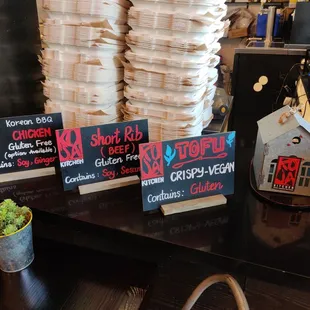 Korean BBQ
CHICKEN
Gluten Free
(option Available)
Contains: Soy, Ginger
KOJA
KITCHEN
Short RIB
(BEEF)
Gluten Free
Contains: Soy,
KOJA
KITCHEN
TOFU
CRISPY-VEGAN
Contains: Gluten
KOJA
KITCHEN